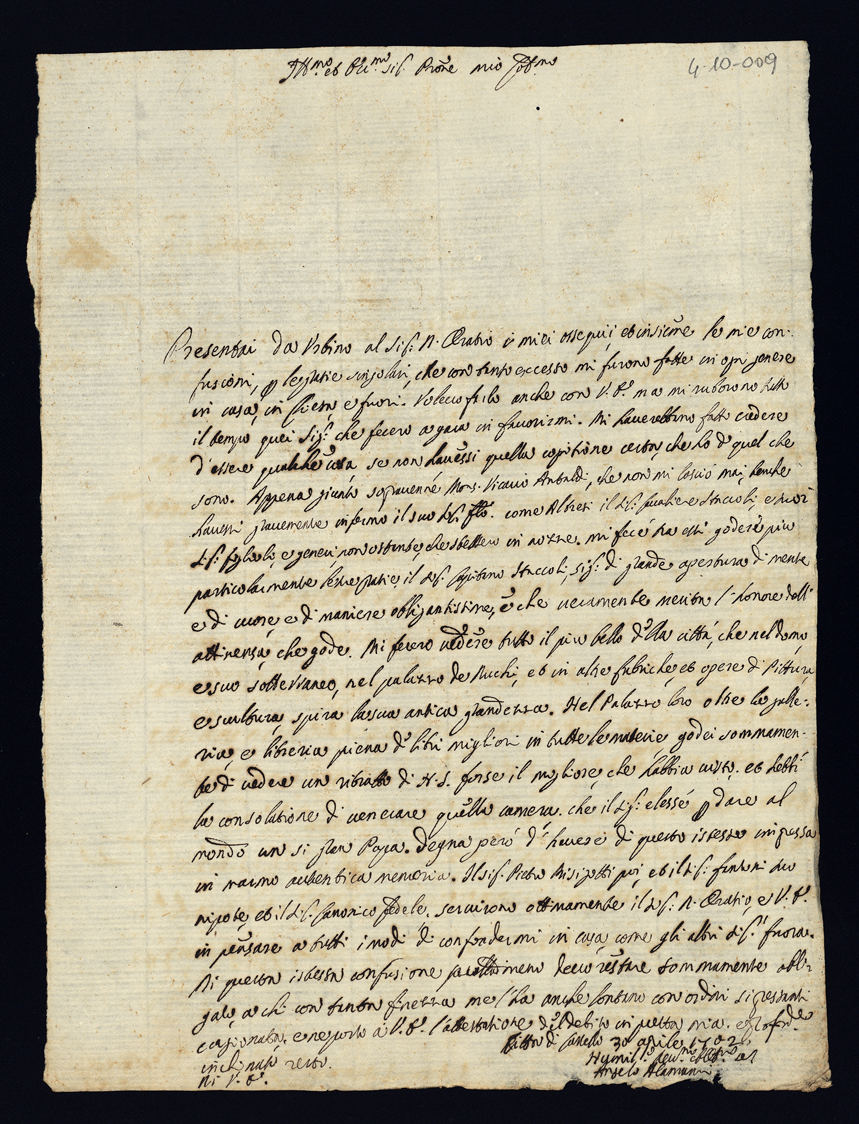 Ill.mo et Rev.mo Sig. Prone mio Col.mo
4-10-009
Presentai da Urbino al Sig. D. Oratio i miei ossequii, et insieme le mie con-
fusioni, le gratie singolari, che con tanto eccesso mi furono fatte in ogni genere
in casa, in e fuori. Volevo farlo anche con V.S. ma mi ruborono tutto
il tempo quei Sig.i che fecero a gara in favorirmi. Mi haverebbono fatto credere
d'essere qualche cosa, se non havessi quella cognitione certa che ho di quel che
sono. Appena giunto sopravenne Mons. Vicario Ansaldi, che non mi lasciò mai, benche
havessi gravemente infermo il suo come Altresi il Sig. Cavaliere Staccoli, e suoi
Sig. e generi, non ostante, che stettero in mi fece tra essi godere più
particolarmente le sue gratie, il Sig. Capitano Staccoli, Sig. di grande apertura di mente
e di cuore, e di maniere obligantissime, e che veramente merita l'honore dell'
attinenza, che gode. Mi fecero vedere tutto il piu bello della città, che nel domo,
e suo sotterraneo, nel palazzo de Duchi, et in altre fabriche et opere di Pittura,
e scultura, spira la sua antica grandezza. Nel Palazzo loro oltre la galle-
ria, e libreria piena di libri migliori in tutte le materie, godei sommamen-
te di vedere un ritratto di N.S. forse il migliore, che habbia visto. et hebbi
la consolatione di venerare quella camera, che il Sig. elesse p dare al
mondo un si gran Papa. Degna però d'havere di questo istesso impressa
in marmo autentica memoria. Il Sig. poi, et il Sig. suo
nipote, et il Sig. Canonico Fedele, servirono ottimamente il Sig. D. Oratio, e V.S.
in pensare a tutti i modi di confondermi in casa, come gli altri Sig.i fuora.
Di questa istessa confusione devo restare sommamente obli-
gato, a chi con tanta finezza me l'ha anche lontano con ordini si pressanti
cagionata. e ne porto a V.S. l'attestatione del debito in questa mia. e
inchinato resto.
Di V.S.
Città di Castello 30 aprile 1702
Humil.o dev.mo
Angelo Alamanni